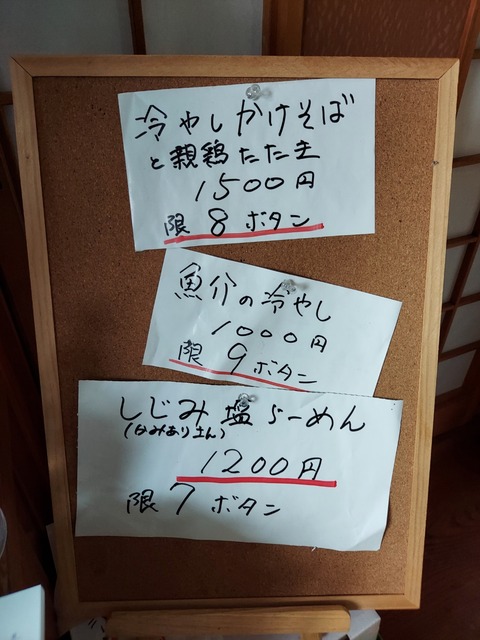 冷やしかけそば
と親鶏たたキ
1500円
限 8 ボタン
魚介の冷やし
1000円
限 9 ボタン
しじみ塩らーめん
1200円
限 7 ボタン